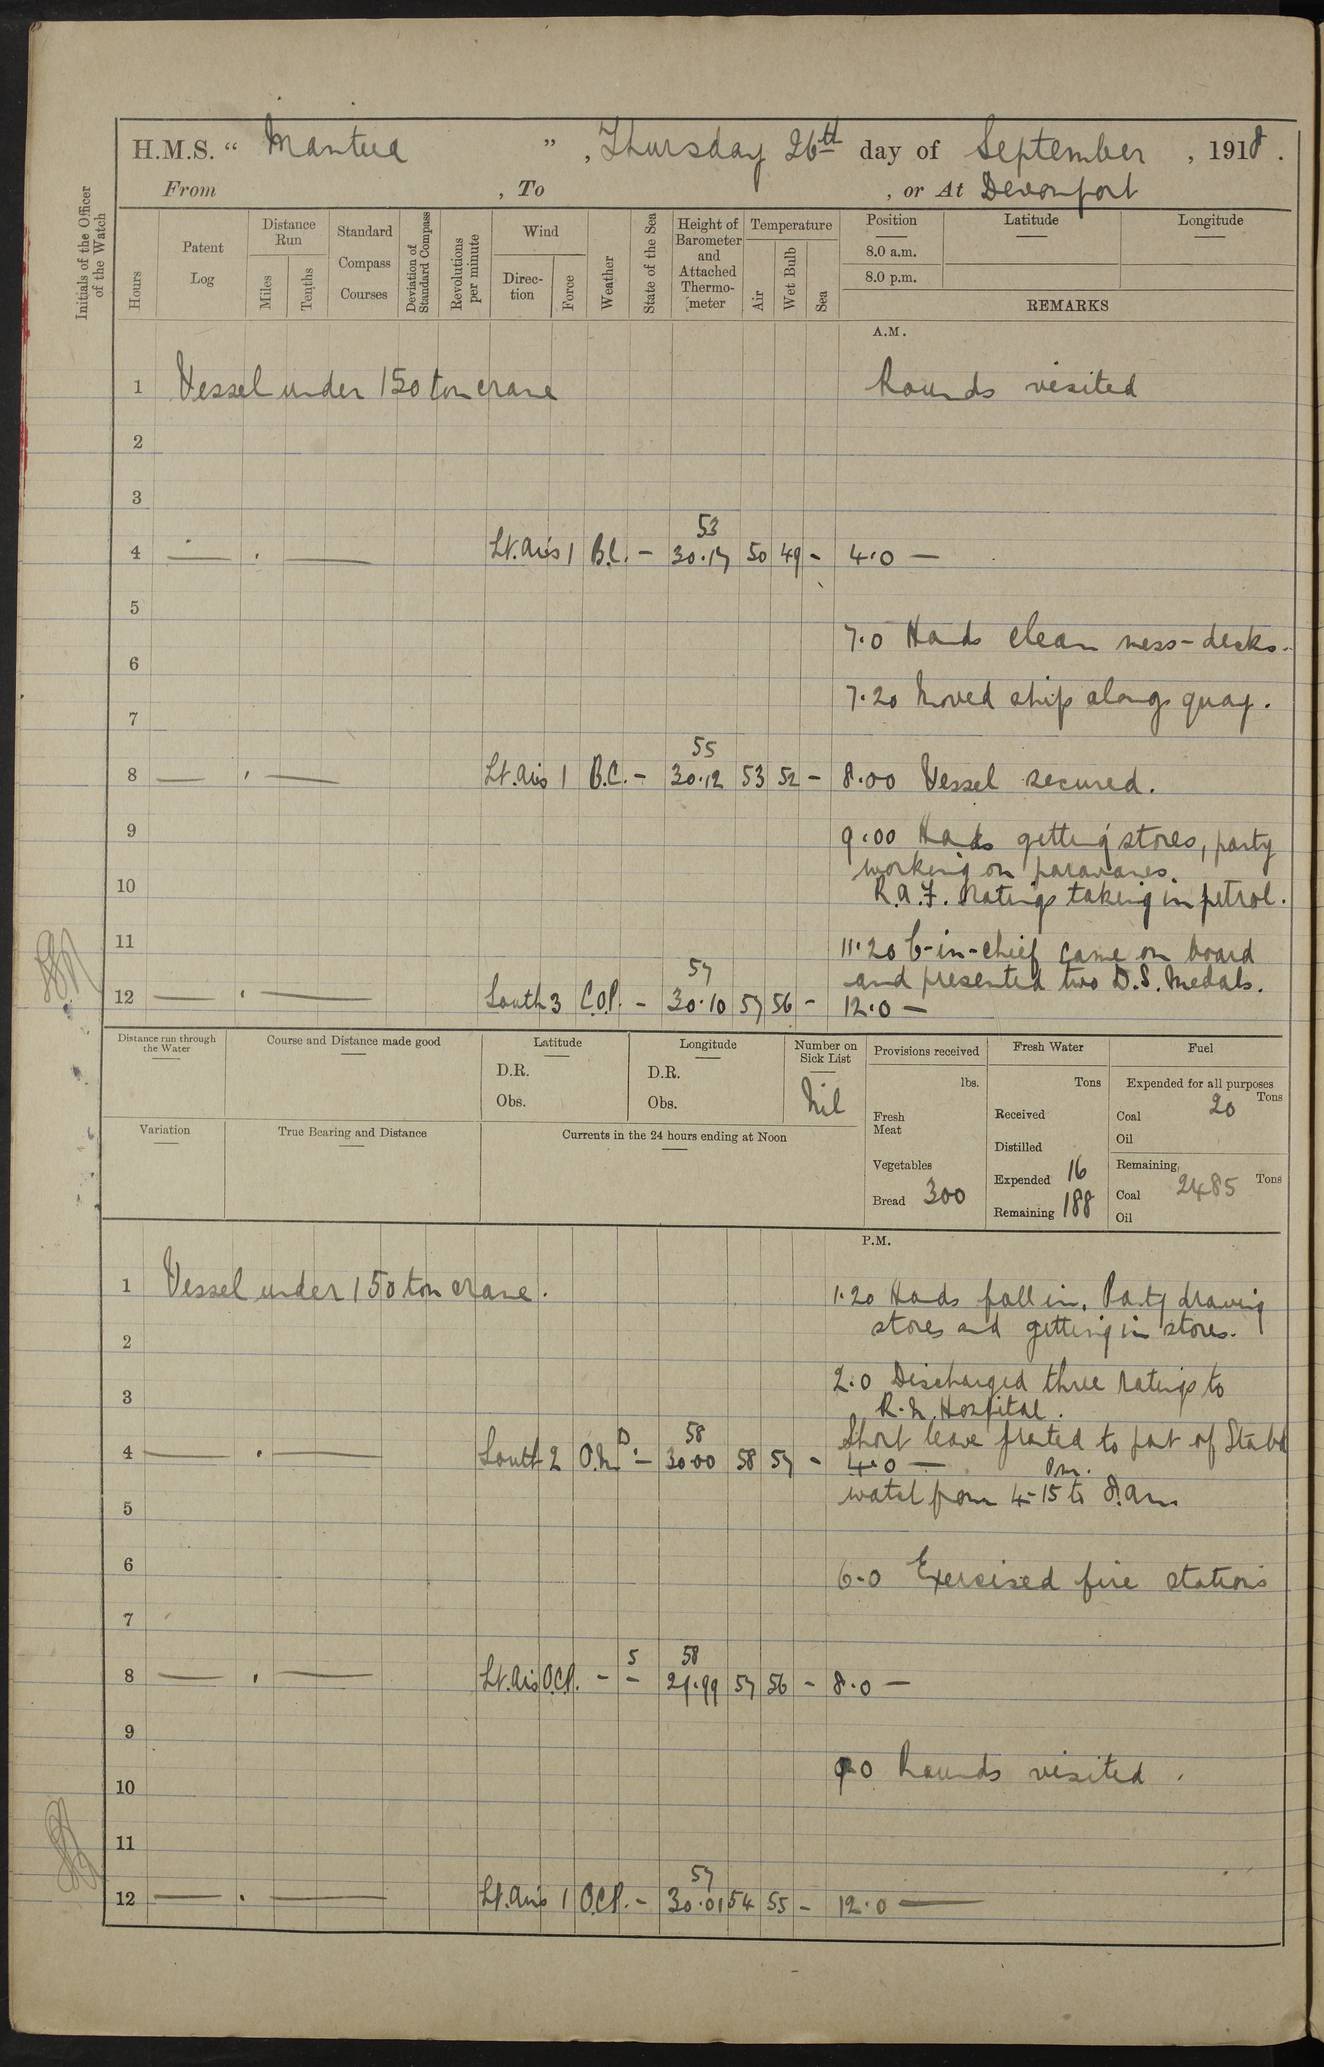 H.M.S. “ Mantua ” , Thursday 26th day of September , 1918 .
From , To , or At Devonport
Initials of the Officer of the Watch
Hours
Patent Log
Distance Run
Miles
Tenths
Standard Compass Courses
Deviation of Standard Compass
Revolutions per minute
Wind
Direc-tion
Force
Weather
State of the Sea
Height of Barometer and Attached Thermo-meter
Temperature
Air
Wet Bulb
Sea
Position
Latitude
Longitude
8.0 a.m.
8.0 p.m.
REMARKS
A.M.
1 Vessel under 150 ton crane Rounds visited
2
3
53
4 — . — Lt. airs 1 B.C. - 30.17 50 49 - 4.0 —
5
7.0 Hands clean mess-decks.
6
7.20 Moved ship along quay.
7
55
8 — . — Lt. airs 1 B.C. - 30.12 53 52 - 8.00 Vessel secured.
9 9.00 Hands getting stores, party
working on paravanes.
10 R.A.F. Ratings taking in petrol.
11 11.20 C-in-chief came on board
57 and presented two D.S. Medals.
12 — . — South 3 C.O.P. - 30.10 57 56 - 12.0 —
Distance run through the Water
Course and Distance made good
Latitude
D.R.
Obs.
Longitude
D.R.
Obs.
Number on Sick List
Nil
Provisions received
lbs.
Fresh Meat
Vegetables
Bread 300
Fresh Water
Tons
Received
Distilled
Expended 16
Remaining 188
Fuel
Expended for all purposes
Tons
Coal 20
Oil
Remaining
Tons
Coal 2485
Oil
Variation
True Bearing and Distance
Currents in the 24 hours ending at Noon
P.M.
1 Vessel under 150 ton crane. 1.20 Hands fall in. Party drawing
stores and getting in stores.
2
2.0 Discharged three ratings to
3 R.N. Hospital.
D 58 Short leave granted to part of Stabd
4 — . — South 2 O.M - 30.00 58 57 - 4.0 —
pm.
watch from 4-15 to 8.am
5
6 6.0 Exercised fire stations
7
5 58
8 — . — Lt. airs O.C.P. - - 29.99 57 56 - 8.0 —
9
9.0 Rounds visited .
10
11
57
12 — . — Lt. airs 1 O.C.P. - 30.01 54 55 - 12.0 —